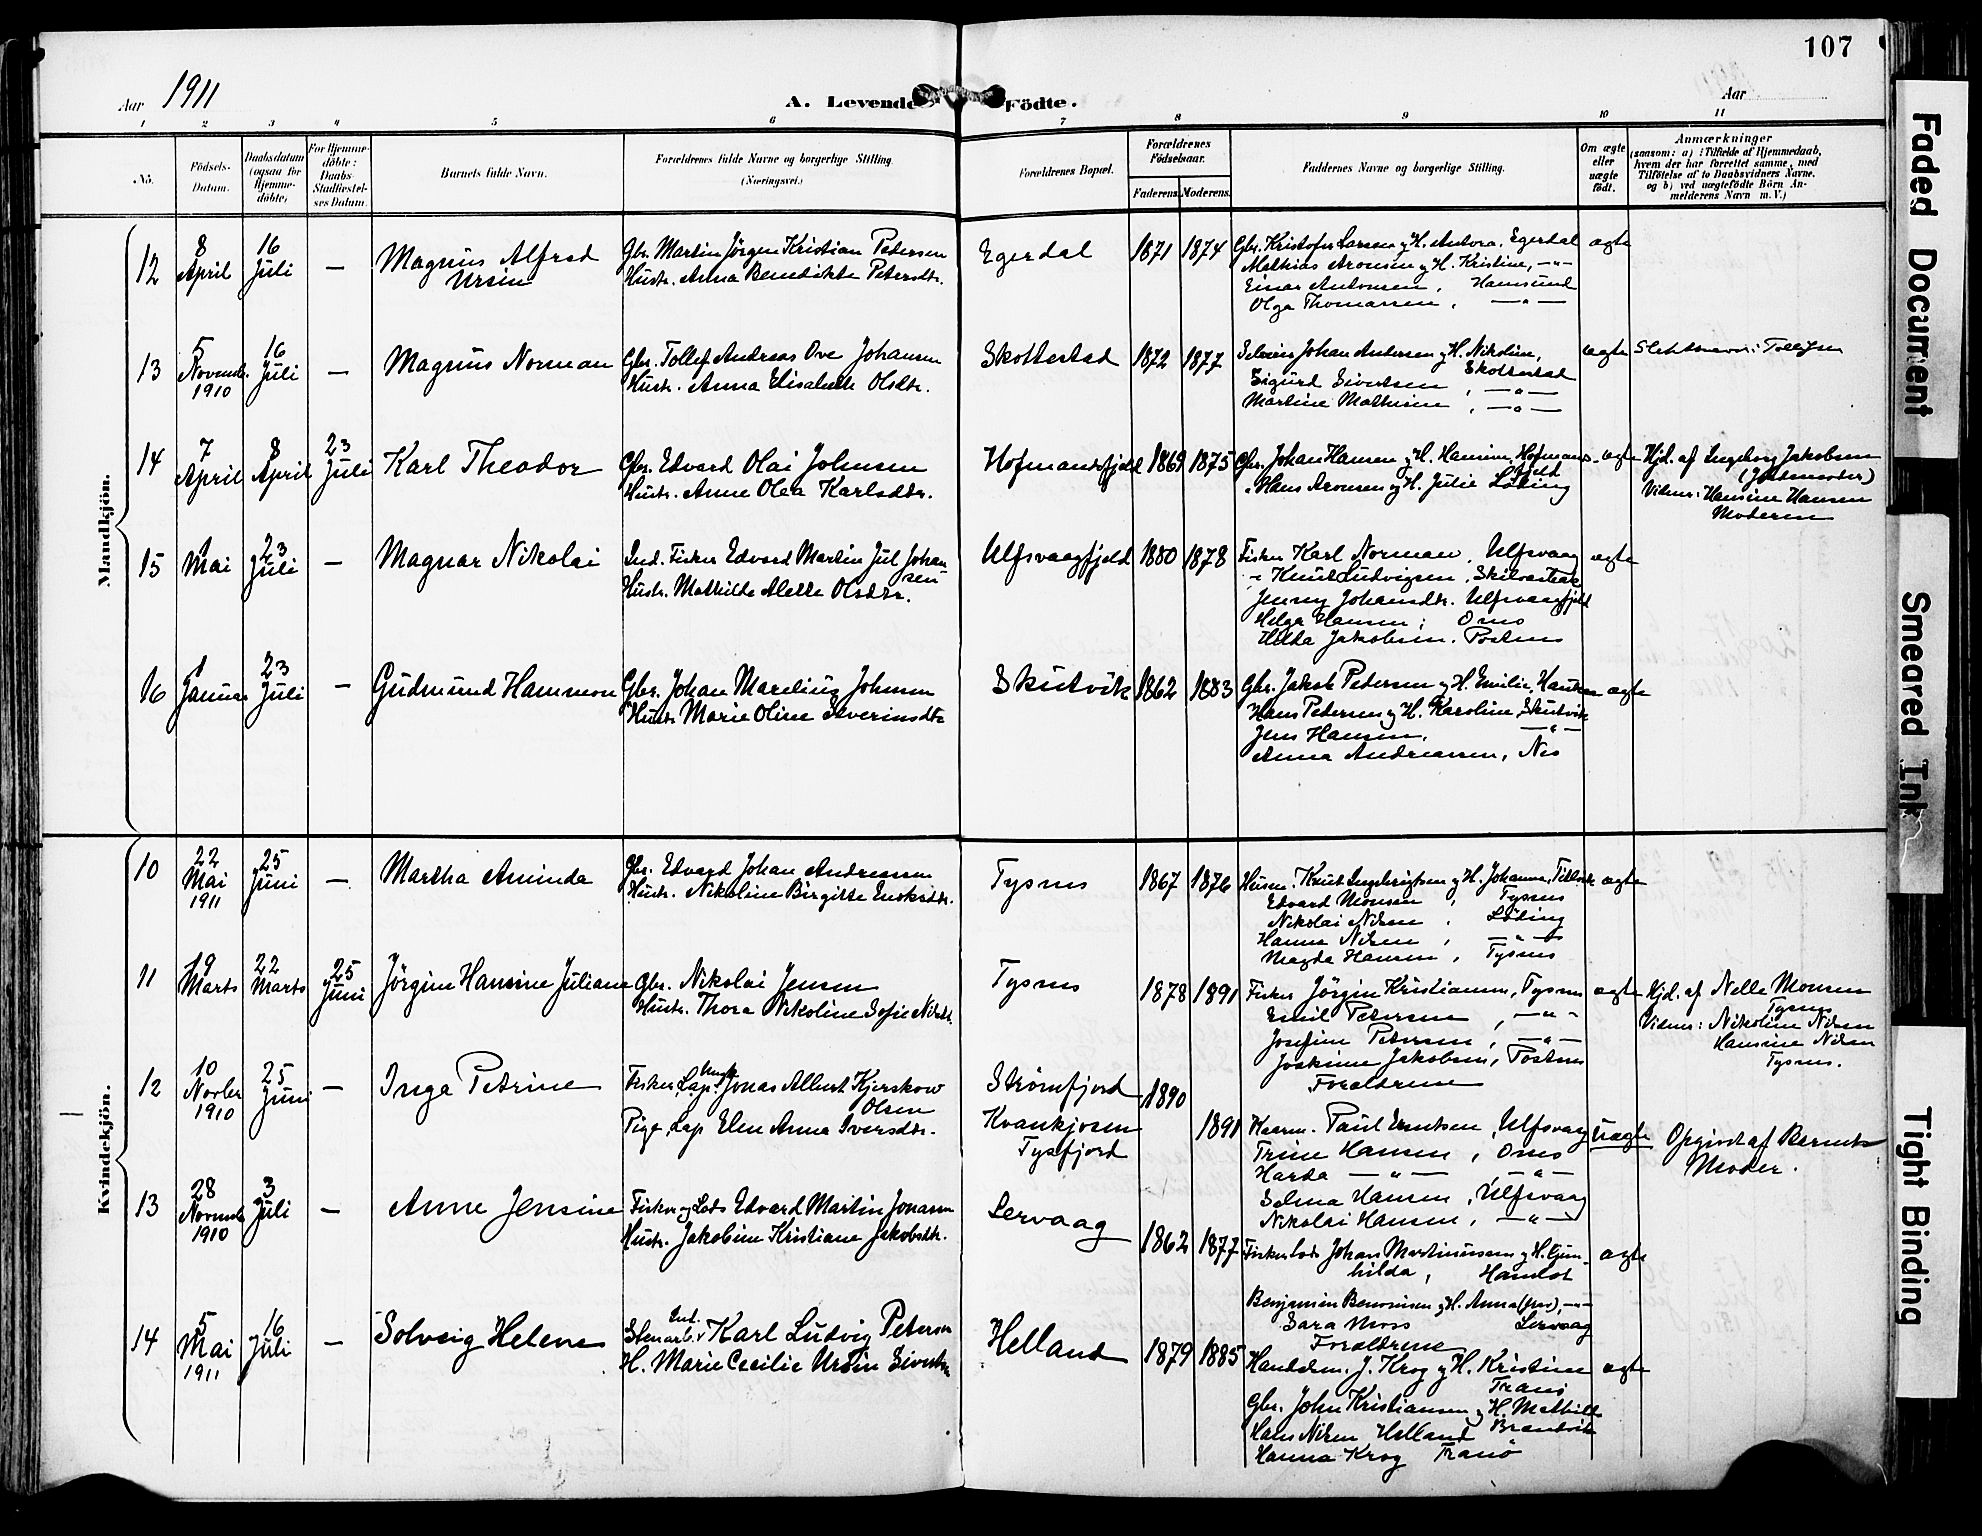 107
Aar 1911
A. Levende Födte.
Aar
1 2 3 4 5 6 7 8 9 10 11
No.
Födsels-Datum.
Daabsdatum (ogsaa for Hjemmedöbte)
For Hjemmedöbte: Daabs-Stadfæstelses Datum.
Barnets fulde Navn.
Forældrenes fulde Navne og borgerlige Stilling. (Næringsvei.)
Forældrenes Bopæl.
Forældrenes Födselsaar.
Faderens. Moderens.
Faddernes Navne og borgerlige Stilling.
Om ægte eller uægte födt.
Anmærkninger
(saasom: a) i Tilfælde af Hjemmedaab,
hvem der har forrettet samme, med
Tilföielse af to Daabsvidners Navne.
og b) ved uægtefödte Börn An-
melderens Navn m. V.)
Mandkjön.
12 8 April 16 Juli — Magnus Alfred Ursin
Gbr. Martin Jörgen Kristian Pedersen
Hustr. Anna Benedikte Petersdtr.
Egerdal 1871 1874
Gbr. Kristofer Larsen og H. Antora, Egerdal ægte
Mathias Aronsen og H. Kristine, —"—
Einar Antonsen, Hamsund
Olga Thomassen, —"—
13 5 Novemb. 1910 16 Juli — Magnus Norman
Gbr. Tollef Andreas Ove Johansen
Hustr. Anna Elisabeth Olsdtr.
Skottestad 1872 1877
Johan Andersen og H. Nikoline,
Skottestad
Sigurd Sivertsen, —"—
Martine Mathisen, —"—
ægte
14 7 April 8 April 23 Juli Karl Theodor
Gbr. Edvard Olai Johnsen
Hustr. Anne Olea Karlsdtr.
Hofmandsfjeld 1869 1875
Gbr. Johan Hansen og H. Hansine, Hofmans-
fjeld
" Hans Aronsen og H. Julie Löding
ægte
Hjd. af Ingeborg Jakobsen
(Jordemoder)
Vidner: Hansine Hansen
Moderen
15 1 Mai 23 Juli — Magnar Nikolai
Ind. Fisker Edvard Martin Jul Johan
sen
Hustr. Mathilde Aletta Olsdtr.
Ulfsvaagfjeld 1880 1878
Fisker Karl Norman, Ulfsvaag ægte
" Knut Ludvigsen,
Jenny Johansdtr. Ulfsvaagfjeld
Helga Hansen, Osnes
Hilda Jakobsen.
16 1 Januar 23 Juli — Gudmund Hammon
Gbr. Johan Marelius Johnsen
Hustr Marie Oline Severinsdtr
Skutvik 1862 1883
Gbr. Jakob Petersen og H. Emilie, ægte
Hans Petersen og H. Karoline, Skutvik
Jens Hansen, —"—
Anna Andreassen, Nes
Kvindekjön.
10 22 Mai 1911 25 Juni — Martha Aminda
Gbr. Edvard Johan Andreassen
Hustr. Nikoline Birgitte Enoksdtr.
Tysnes 1867 1876
Husm. Knut Ingebrigtsen og H. Johanna, ægte
Edvard Monsen, Tysnes
Nikolai Nilsen, Löding
Hanna Nilsen, —"—
Magda Hansen, Tysnes
11 19 Marts 22 Marts 25 Juni Jörgine Hansine Juliane
Gbr. Nikolai Jensen
Hustr. Thora Nikoline Sofie Nilsdtr.
Tysnes 1878 1891
Fisker Jörgin Kristiansen, Tysnes ægte
Emil Petersen, —"—
Josefine Petersen, —"—
Joakime Jakobsen,
Forældrene
Hjd. af Nelle Monsen
Tysnes
Vidner: Nikoline Nilsen
Hansine Nilsen
Tysnes.
12 10 Novbr 1910 25 Juni — Inga Petrine
Fisker, Lap, Ungk. Jonas Albert Kjerskow
Olsen
Pige, Lap Elen Anna Iversdtr.
Strömfjord
Kvankjosen
Tysfjord
1890 1891
Paul Erntsen, Ulfsvaag uægte
Trine Hansen, Osnes
Harda —"— —"—
Selma Hansen, Ulfsvaag
Nikolai Hansen, —"—
Opgivet af Barnets
Moder.
13 28 Novemb 1910 3 Juli — Anne Jensine
Fisker og Lods Edvard Martin Jonassen
Hustr. Jakobine Kristiane Jakobsdtr.
Lervaag 1862 1877
Fisker Lods Johan Martinussen og H. Gun-
hilda, Hamlot
ægte
Benjamin Benonisen og H. Anna —"—
Sara Moss Lervaag
Forældrene
14 5 Mai 1911 16 Juli — Solveig Helene
Ind.
Stenarb. Karl Ludvig Petersen
H. Marie Cecilie Ursin Sivertsen
Helland 1879 1885
Handelsm. J. Krog og H. Kristine ægte
Tranö
Gbr. John Kristiansen og H. Mathilde
Brandvik
Hans Nilsen Helland
Hanna Krog Tranö
Faded Document
Smeared Ink
Tight Binding